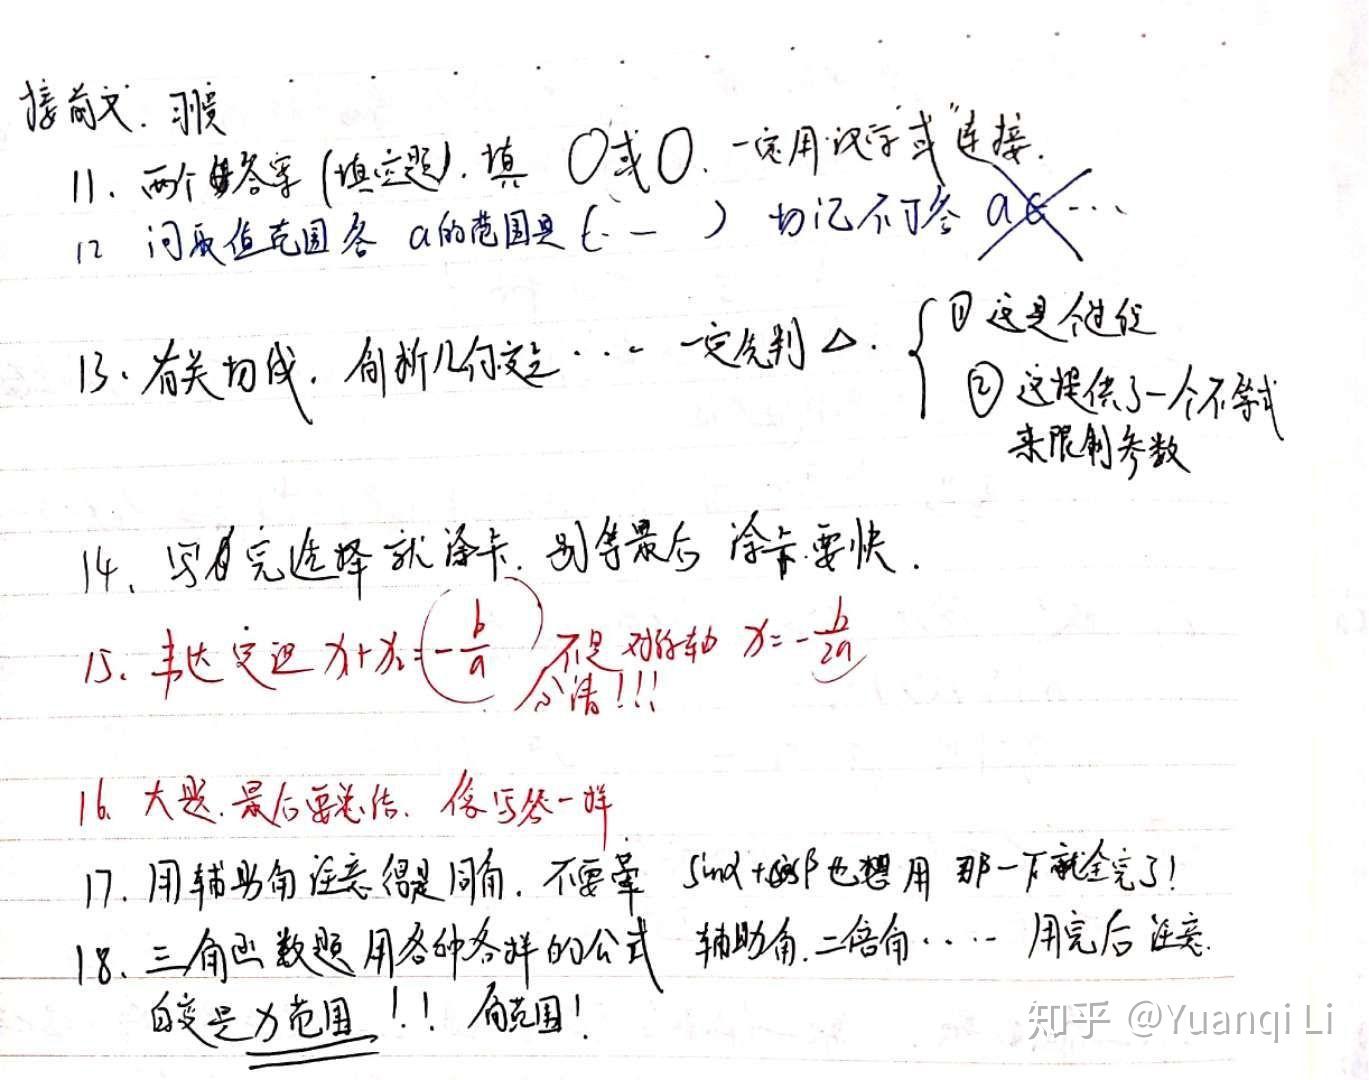 接前文.习惯
11. 两个答案(填空题).填 〇或〇.一定用汉字"或"连接.
12 问取值范围答 a的范围是(..—) 切记不可答 a∈...
13. 有关切线.解析几何交点...一定先判△.
① 这是个过程
② 这提供了一个不等式
来限制参数
14. 写完选择就涂卡.别等最后 涂卡要快.
15. 韦达定理 x₁+x₂=-b/a 不是对称轴 x=-b/2a
分清!!!
16. 大题.最后要总结.像写答一样
17. 用辅助角注意得是同角.不要 sinα+cosβ也想用 那一下就全完了!
18. 三角函数题用各种各样的公式 辅助角.二倍角.... 用完后注意.
自变量x范围!!角范围!
知乎 @Yuanqi Li